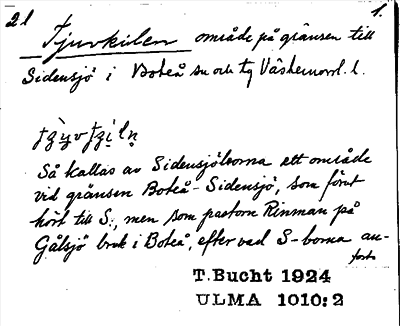 21 1.
Tjuvkilen område på gränsen till
Sidensjö i Boteå sn och tg Västernorrl. l.
Så kallas av Sidensjöborna ett område
vid gränsen Boteå-Sidensjö, som förut
hört till S., men som pastorn Rinman på
Gålsjö bruk i Boteå, efter vad S-borna an-
fört
T. Bucht 1924
ULMA 1010:2